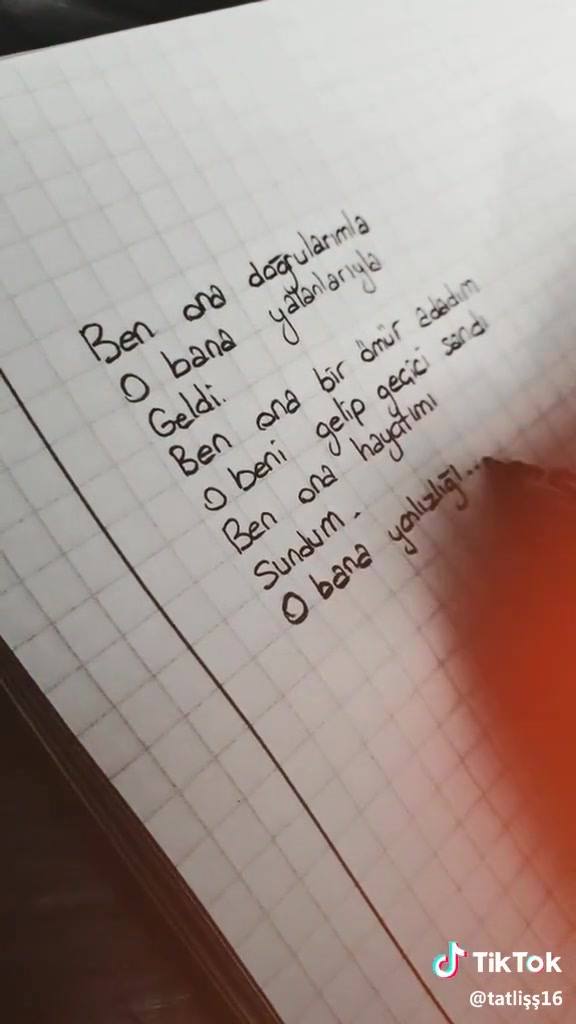 Ben ona doğrularımla
O bana yalanlarıyla
Geldi.
Ben ona bir ömür adadım
O beni gelip geçici sandı
Ben ona hayatımı
Sundum.
O bana yanlızlığı...
TikTok
@tatlişş16